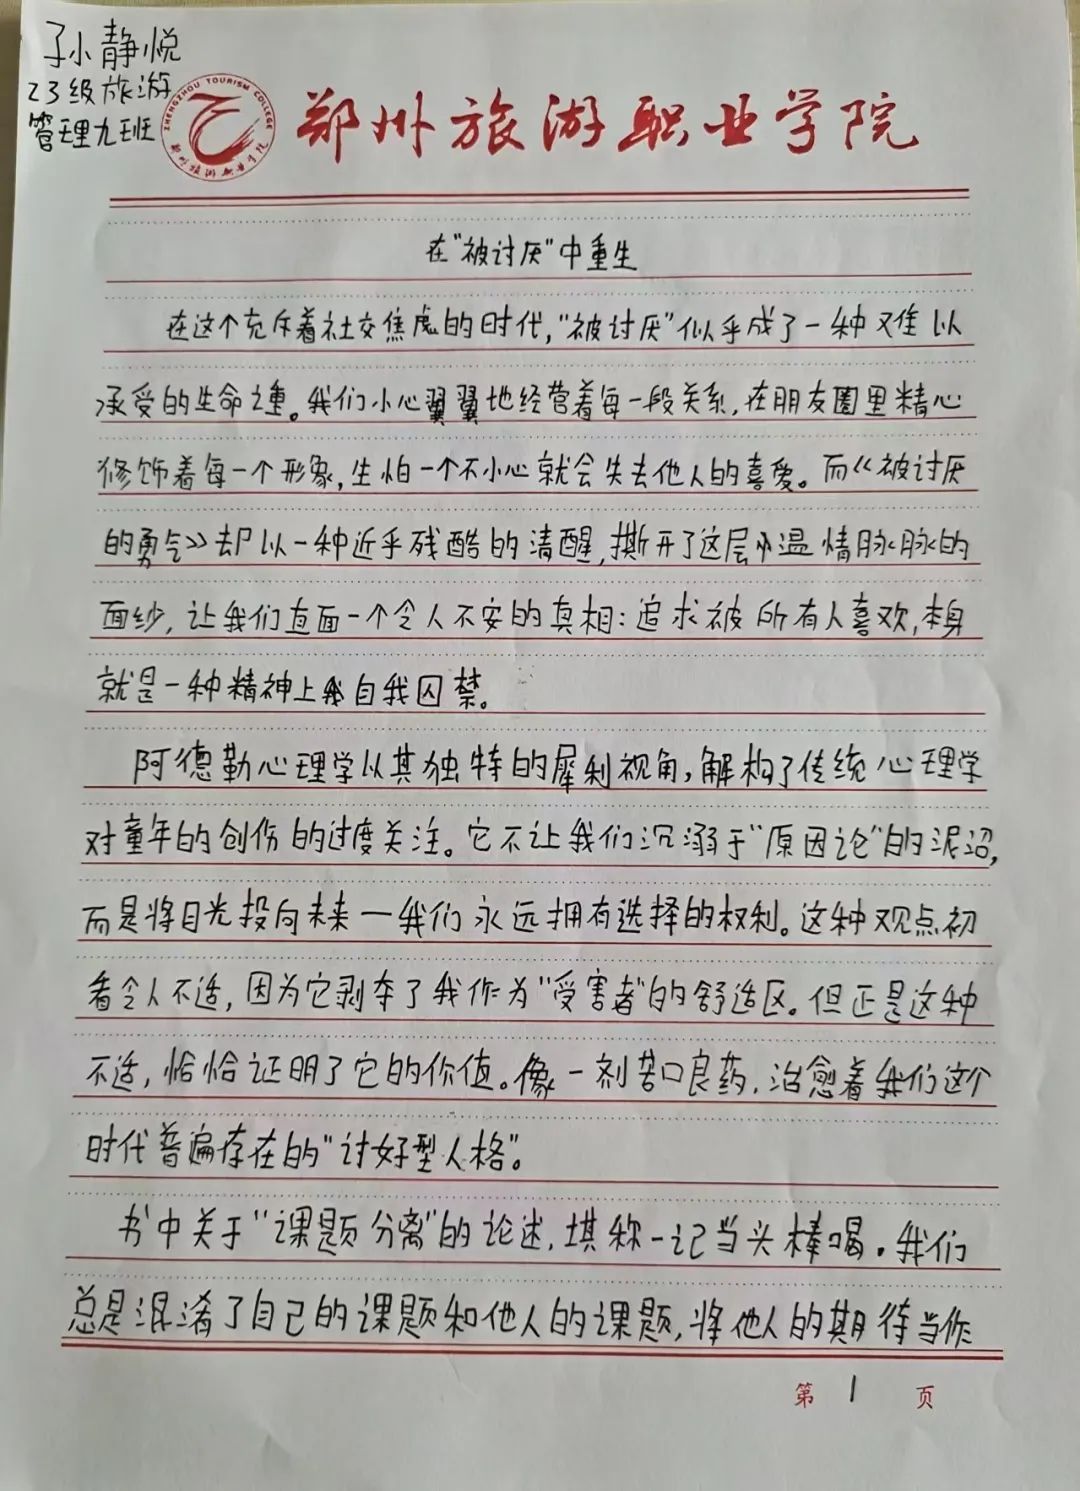 孙静悦
23级旅游
管理九班
ZHENGZHOU TOURISM COLLEGE
郑州旅游职业学院
郑州旅游职业学院
在"被讨厌"中重生
在这个充斥着社交焦虑的时代,"被讨厌"似乎成了一种难以
承受的生命之重。我们小心翼翼地经营着每一段关系,在朋友圈里精心
修饰着每一个形象,生怕一个不小心就会失去他人的喜爱。而《被讨厌
的勇气》却以一种近乎残酷的清醒,撕开了这层温情脉脉的
面纱,让我们直面一个令人不安的真相:追求被所有人喜欢,本身
就是一种精神上自我囚禁。
阿德勒心理学以其独特的犀利视角,解构了传统心理学
对童年的创伤的过度关注。它不让我们沉溺于"原因论"的泥沼,
而是将目光投向未来—我们永远拥有选择的权利。这种观点初
看令人不适,因为它剥夺了我作为"受害者"的舒适区。但正是这种
不适,恰恰证明了它的价值。像一剂苦口良药,治愈着我们这个
时代普遍存在的"讨好型人格"。
书中关于"课题分离"的论述,堪称一记当头棒喝。我们
总是混淆了自己的课题和他人的课题,将他人的期待当作
第1页